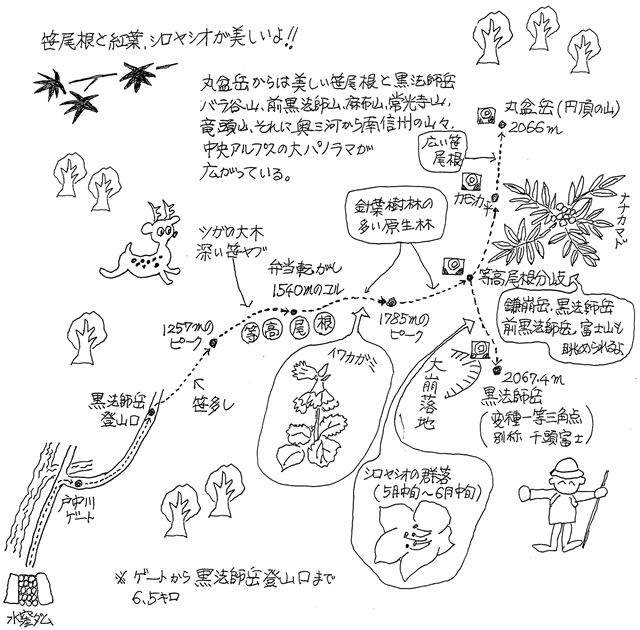 笹尾根と紅葉、シロヤシオが美しいよ!!
丸盆岳からは美しい笹尾根と黒法師岳
バラ谷山、前黒法師山、麻布山、常光寺山、
竜頭山、それに奥三河から南信州の山々、
中央アルプスの大パノラマが
広がっている。
丸盆岳(円頂の山)
2066m
広い笹
尾根
カモシカ平
ナナカマド
針葉樹林の
多い原生林
ツガの大木
深い笹ヤブ
弁当転がし
1540mのコル
等高尾根分岐
鎌崩岳、黒法師岳
前黒法師岳、富士山も
眺められるよ
1257mの
ピーク
等高尾根
1785mの
ピーク
イワカガミ
大崩落地
2067.4m
黒法師岳
(変種一等三角点
別称 千頭富士)
笹多し
黒法師岳
登山口
シロヤシオの群落
(5月中旬~6月中旬)
戸中川
ゲート
※ゲートから黒法師岳登山口まで
6.5キロ
水窪ダム